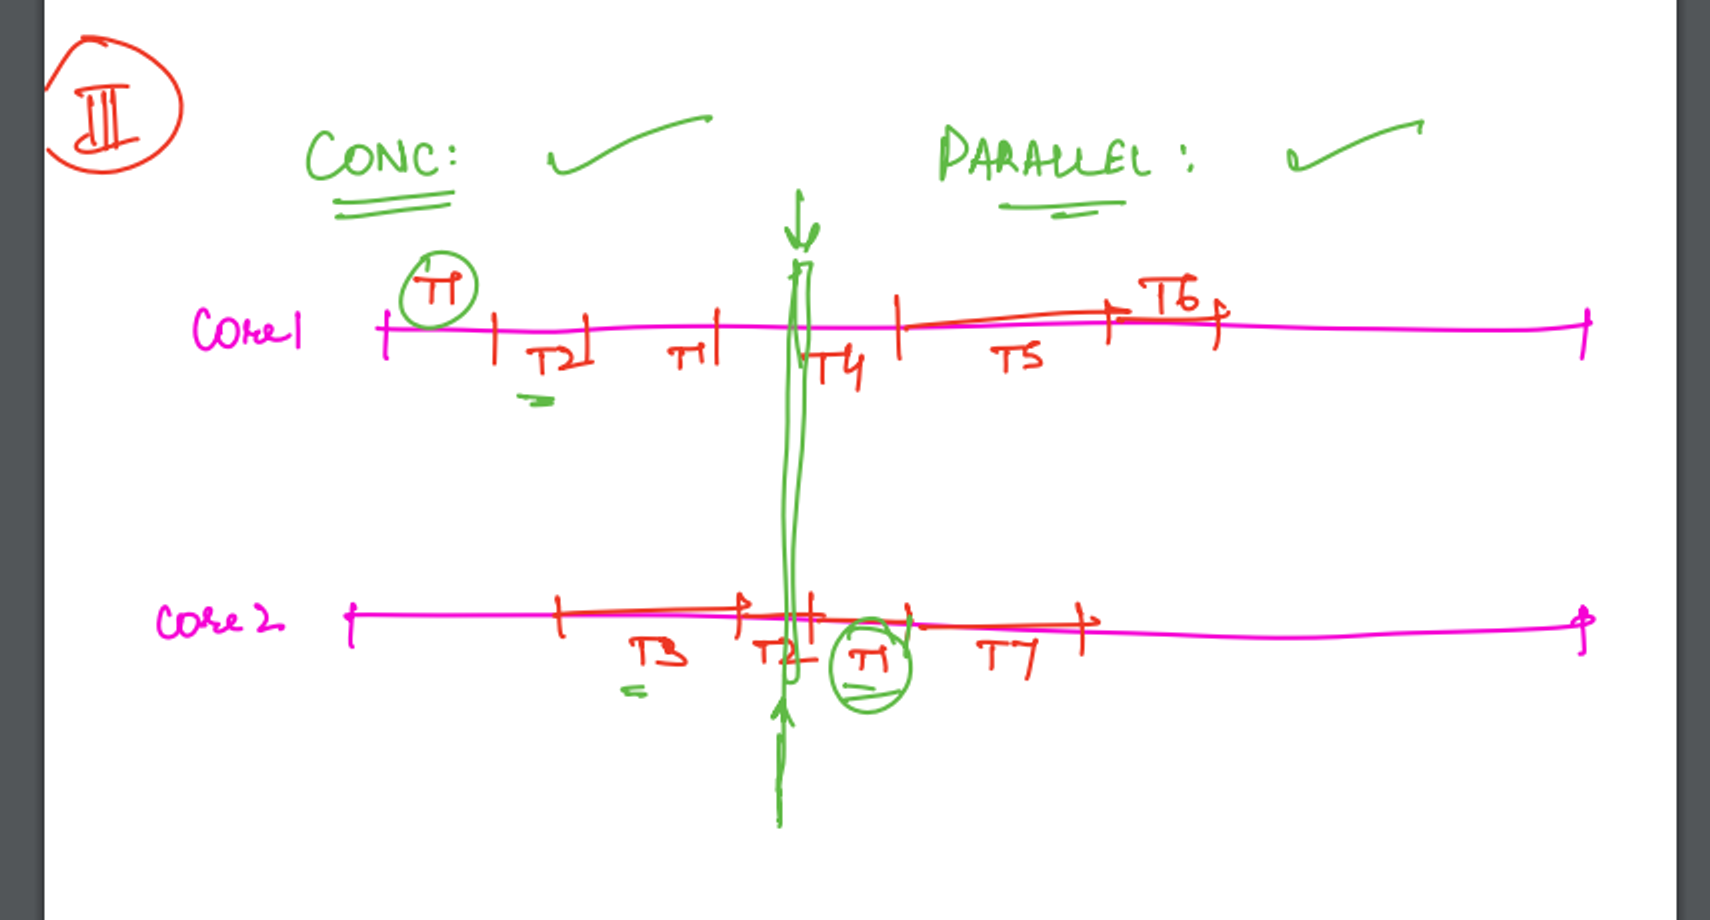 III
CONC: PARALLEL:
T1 T6
Core1
T2 T1 T4 T5
Core2
T3 T2 T1 T7